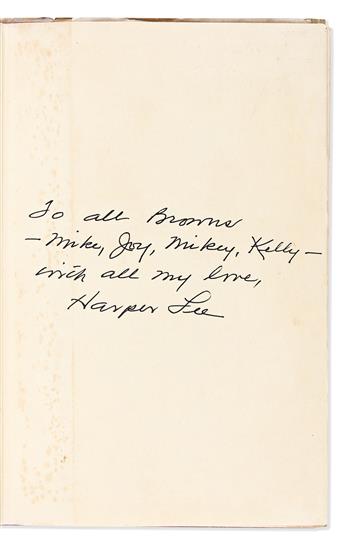 To all Browns
— Mike, Joy, Mikey, Kelly —
with all my love,
Harper Lee